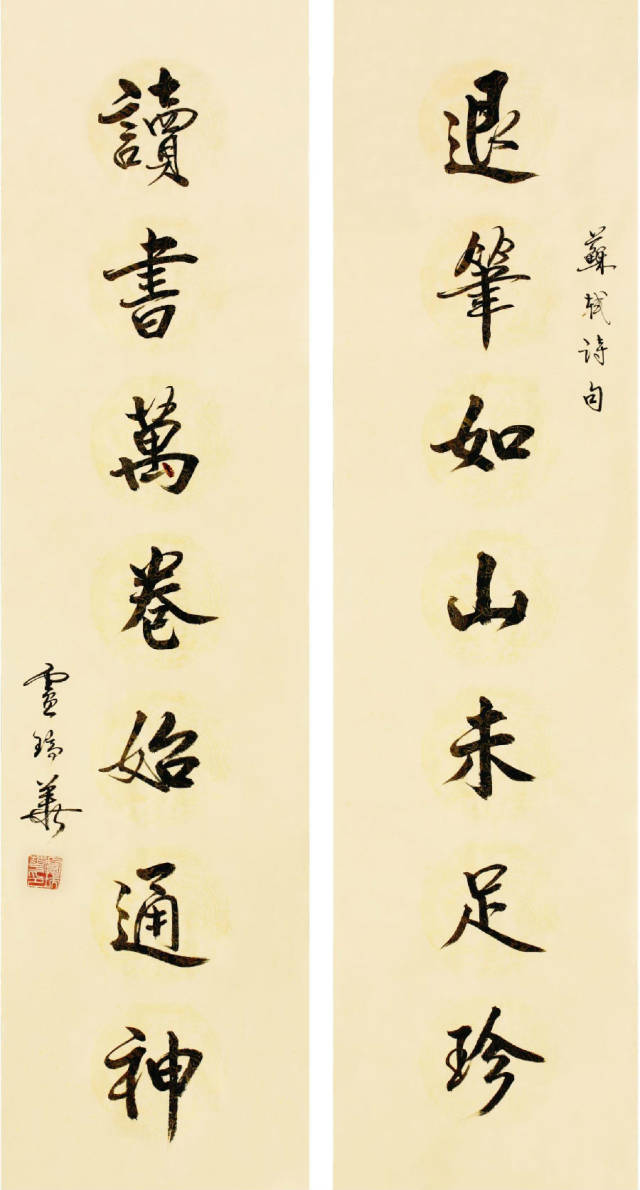 蘇軾詩句
退筆如山未足珍
讀書萬卷始通神
盧瑞華